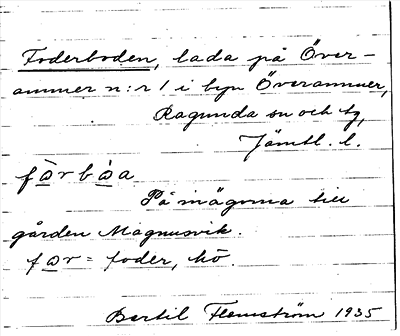 Foderboden, lada på Över-
ammer n:r 1 i byn Överammer,
Ragunda sn och tg,
Jämtl. l.
fàrbàa
På inägorna till
gården Magnusvik.
far = foder, hö.
Bertil Flemström 1935